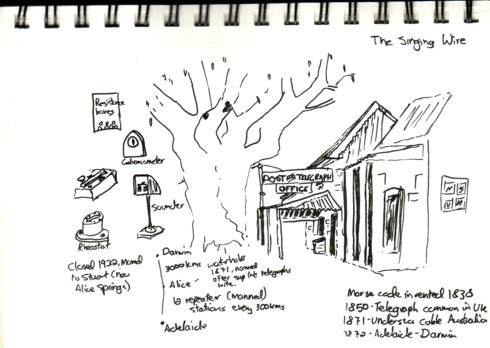 The Singing Wire
Resistance
boxes
Galvanometer
Sounder
Rheostat
POST & TELEGRAPH
OFFICE
N S
N W
Closed 1932, Moved
to Stuart (now
Alice Springs)
• Darwin
3000kms
waterhole
1871, named
after sup/t telegraphs
wife.
Alice -
repeater (manned)
stations every 300kms
• Adelaide
Morse code invented 1838
1850 - Telegraph common in UK
1871 - Undersea Cable Australia
1872 - Adelaide - Darwin